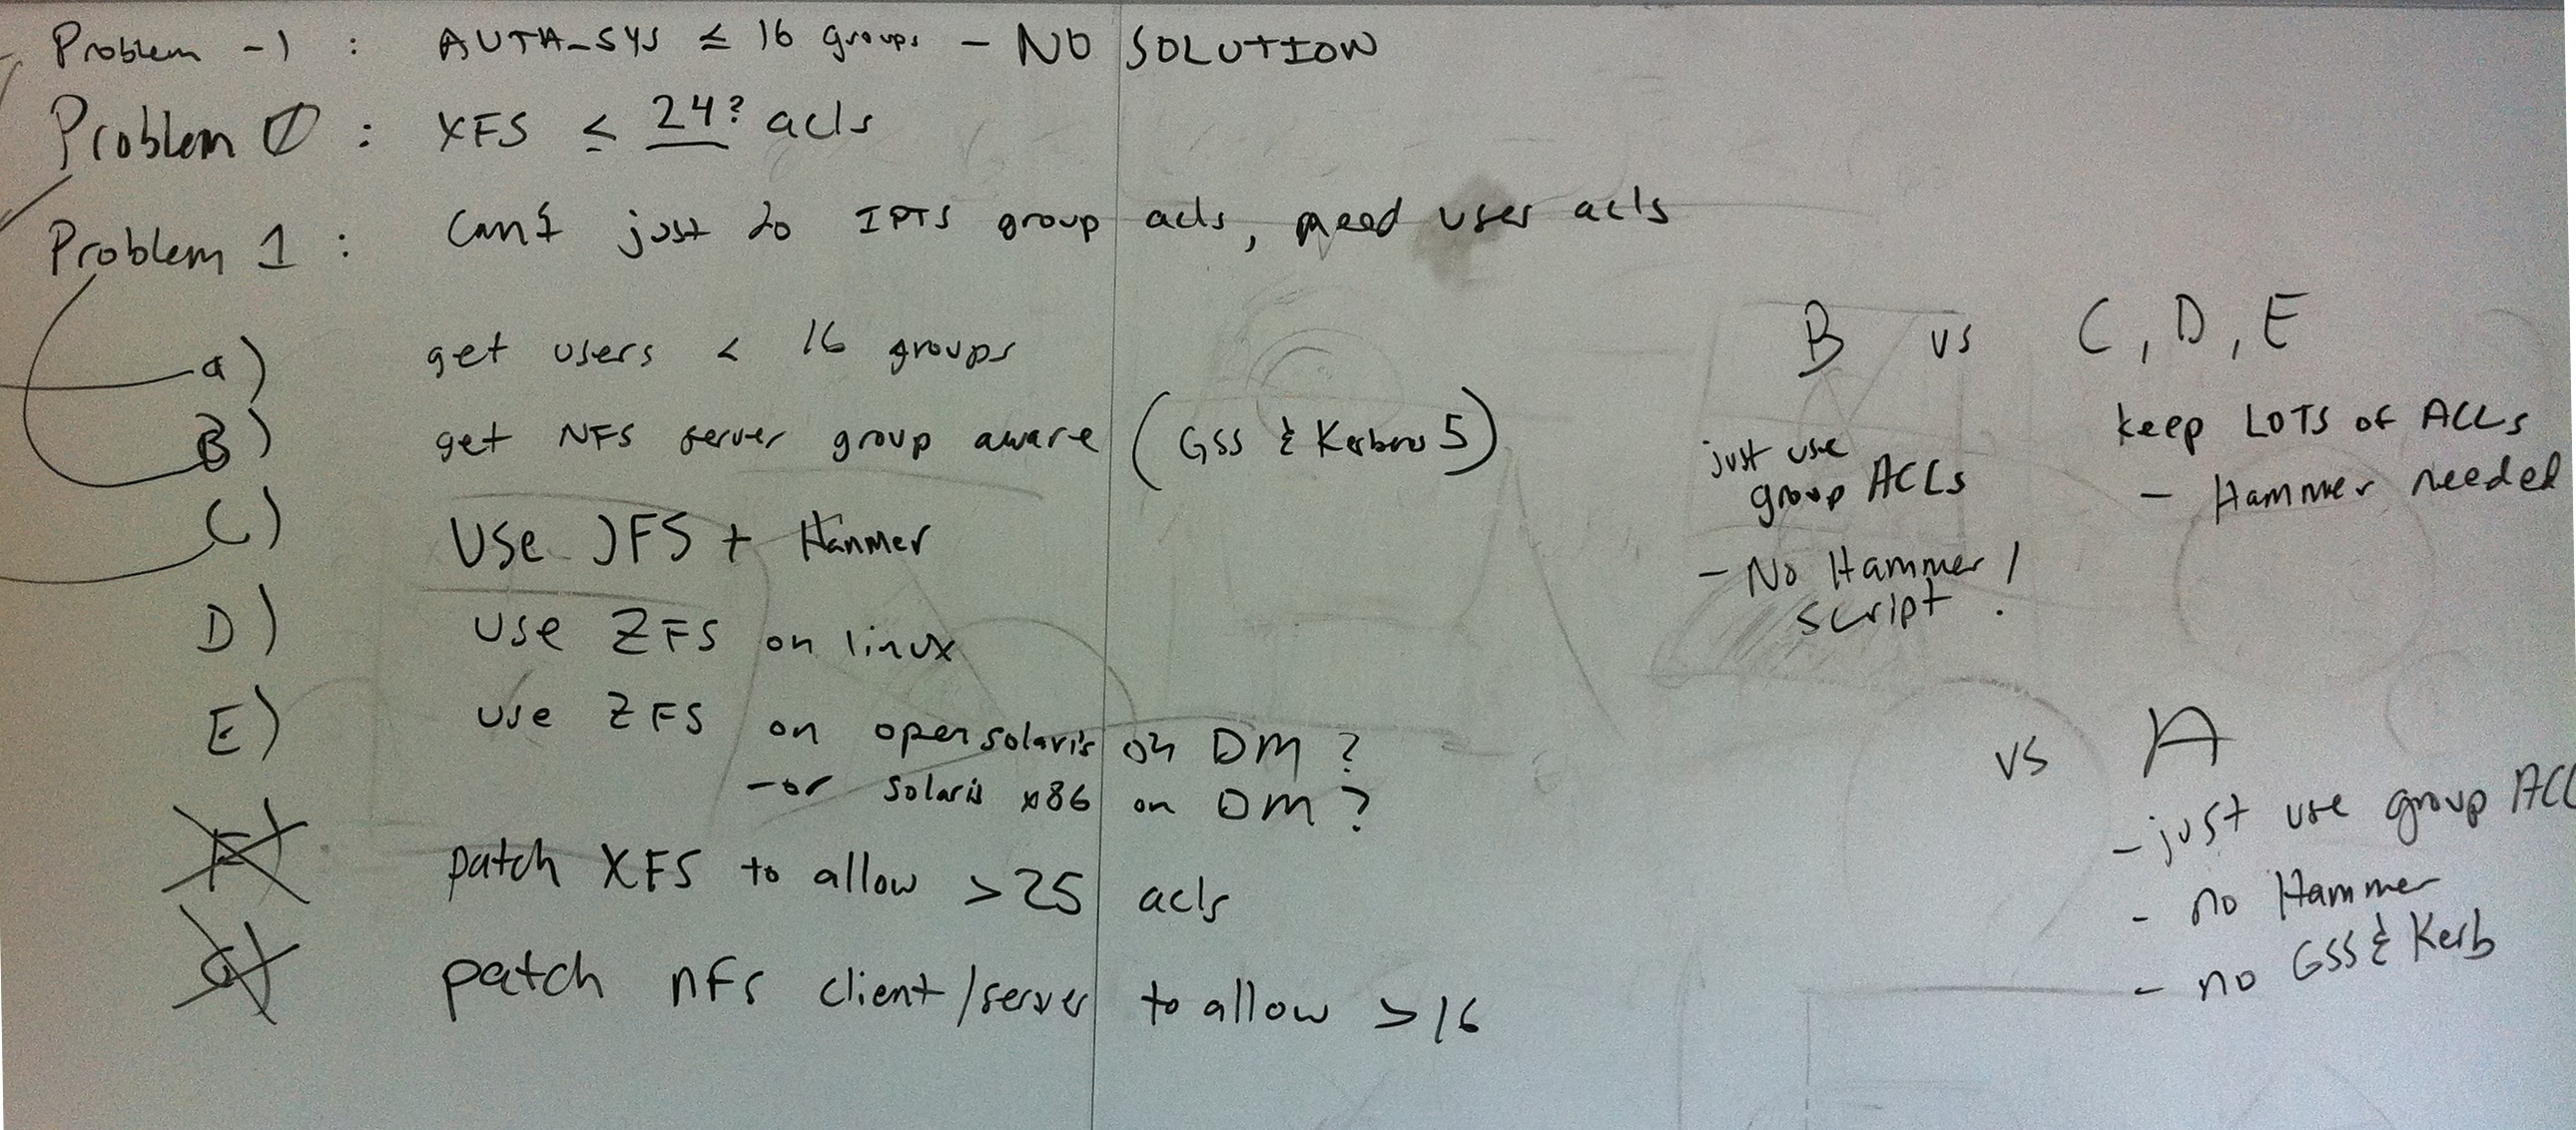 Problem -1 : AUTH_SYS ≤ 16 groups - NO SOLUTION
Problem 0 : XFS ≤ 24? acls
Problem 1 : Can't just do IPTS group acls, need user acls
a) get users < 16 groups
B) get NFS server group aware (GSS & Kerberos 5)
C) Use JFS + Hammer
D) use ZFS on linux
E) use ZFS on opensolaris on DM?
- or solaris x86 on DM?
F) patch XFS to allow >25 acls
G) patch nfs client/server to allow >16
B vs C, D, E
just use
group ACLs
- No Hammer /
script.
keep LOTS of ACLs
- Hammer needed
vs A
- just use group ACL
- no Hammer
- no GSS & Kerb